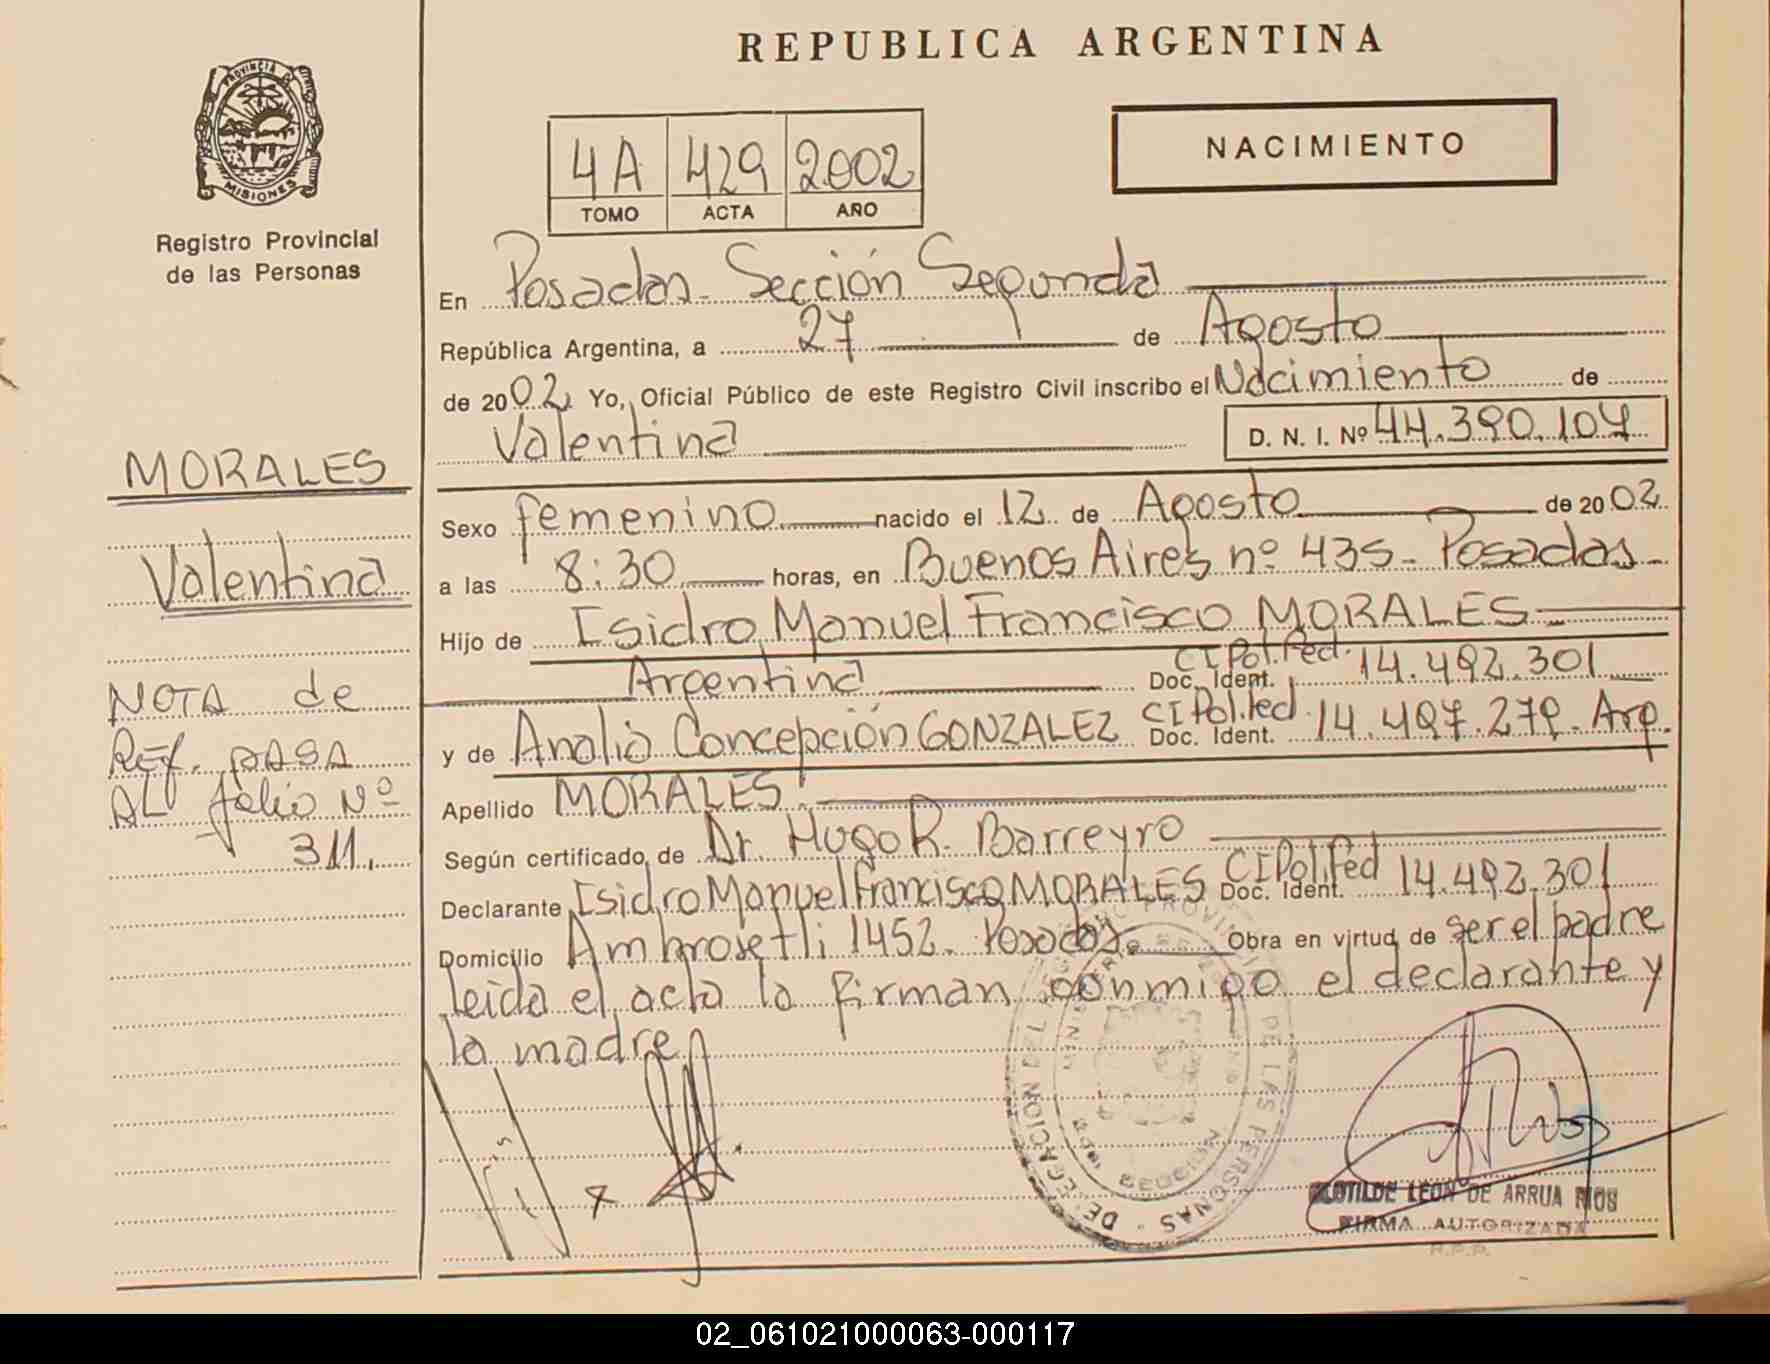 REPUBLICA ARGENTINA
PROVINCIA D
MISIONES
Registro Provincial
de las Personas
4A 429 2002
TOMO ACTA AÑO
NACIMIENTO
En Posadas. Sección Segunda
República Argentina, a 27 de Agosto
de 2002 Yo, Oficial Público de este Registro Civil inscribo el Nacimiento de
Valentina D. N. I. Nº 44.390.107
MORALES
Valentina
NOTA de
REf. pASA
AL folio Nº
311.
Sexo femenino nacido el 12 de Agosto de 2002
a las 8:30 horas, en Buenos Aires nº 435 - Posadas -
Hijo de Isidro Manuel Francisco MORALES
Argentina Doc. Ident. CI Pol. Fed. 14.492.301
y de Analia Concepción GONZALEZ Doc. Ident. CI Pol. Fed. 14.497.279. Arg.
Apellido MORALES
Según certificado de Dr. Hugo R. Barreyro
Declarante Isidro Manuel Francisco MORALES Doc. Ident. CI Pol. Fed 14.492.301
Domicilio Ambrosetti 1452. Posadas. Obra en virtud de ser el padre
leida el acta la firman conmigo el declarante y
la madre
DELEGACION DEL REGISTRO PROVINCIAL DE LAS PERSONAS
CLOTILDE LEON DE ARRUA RIOS
FIRMA AUTORIZADA
R.P.P.
02_061021000063-000117